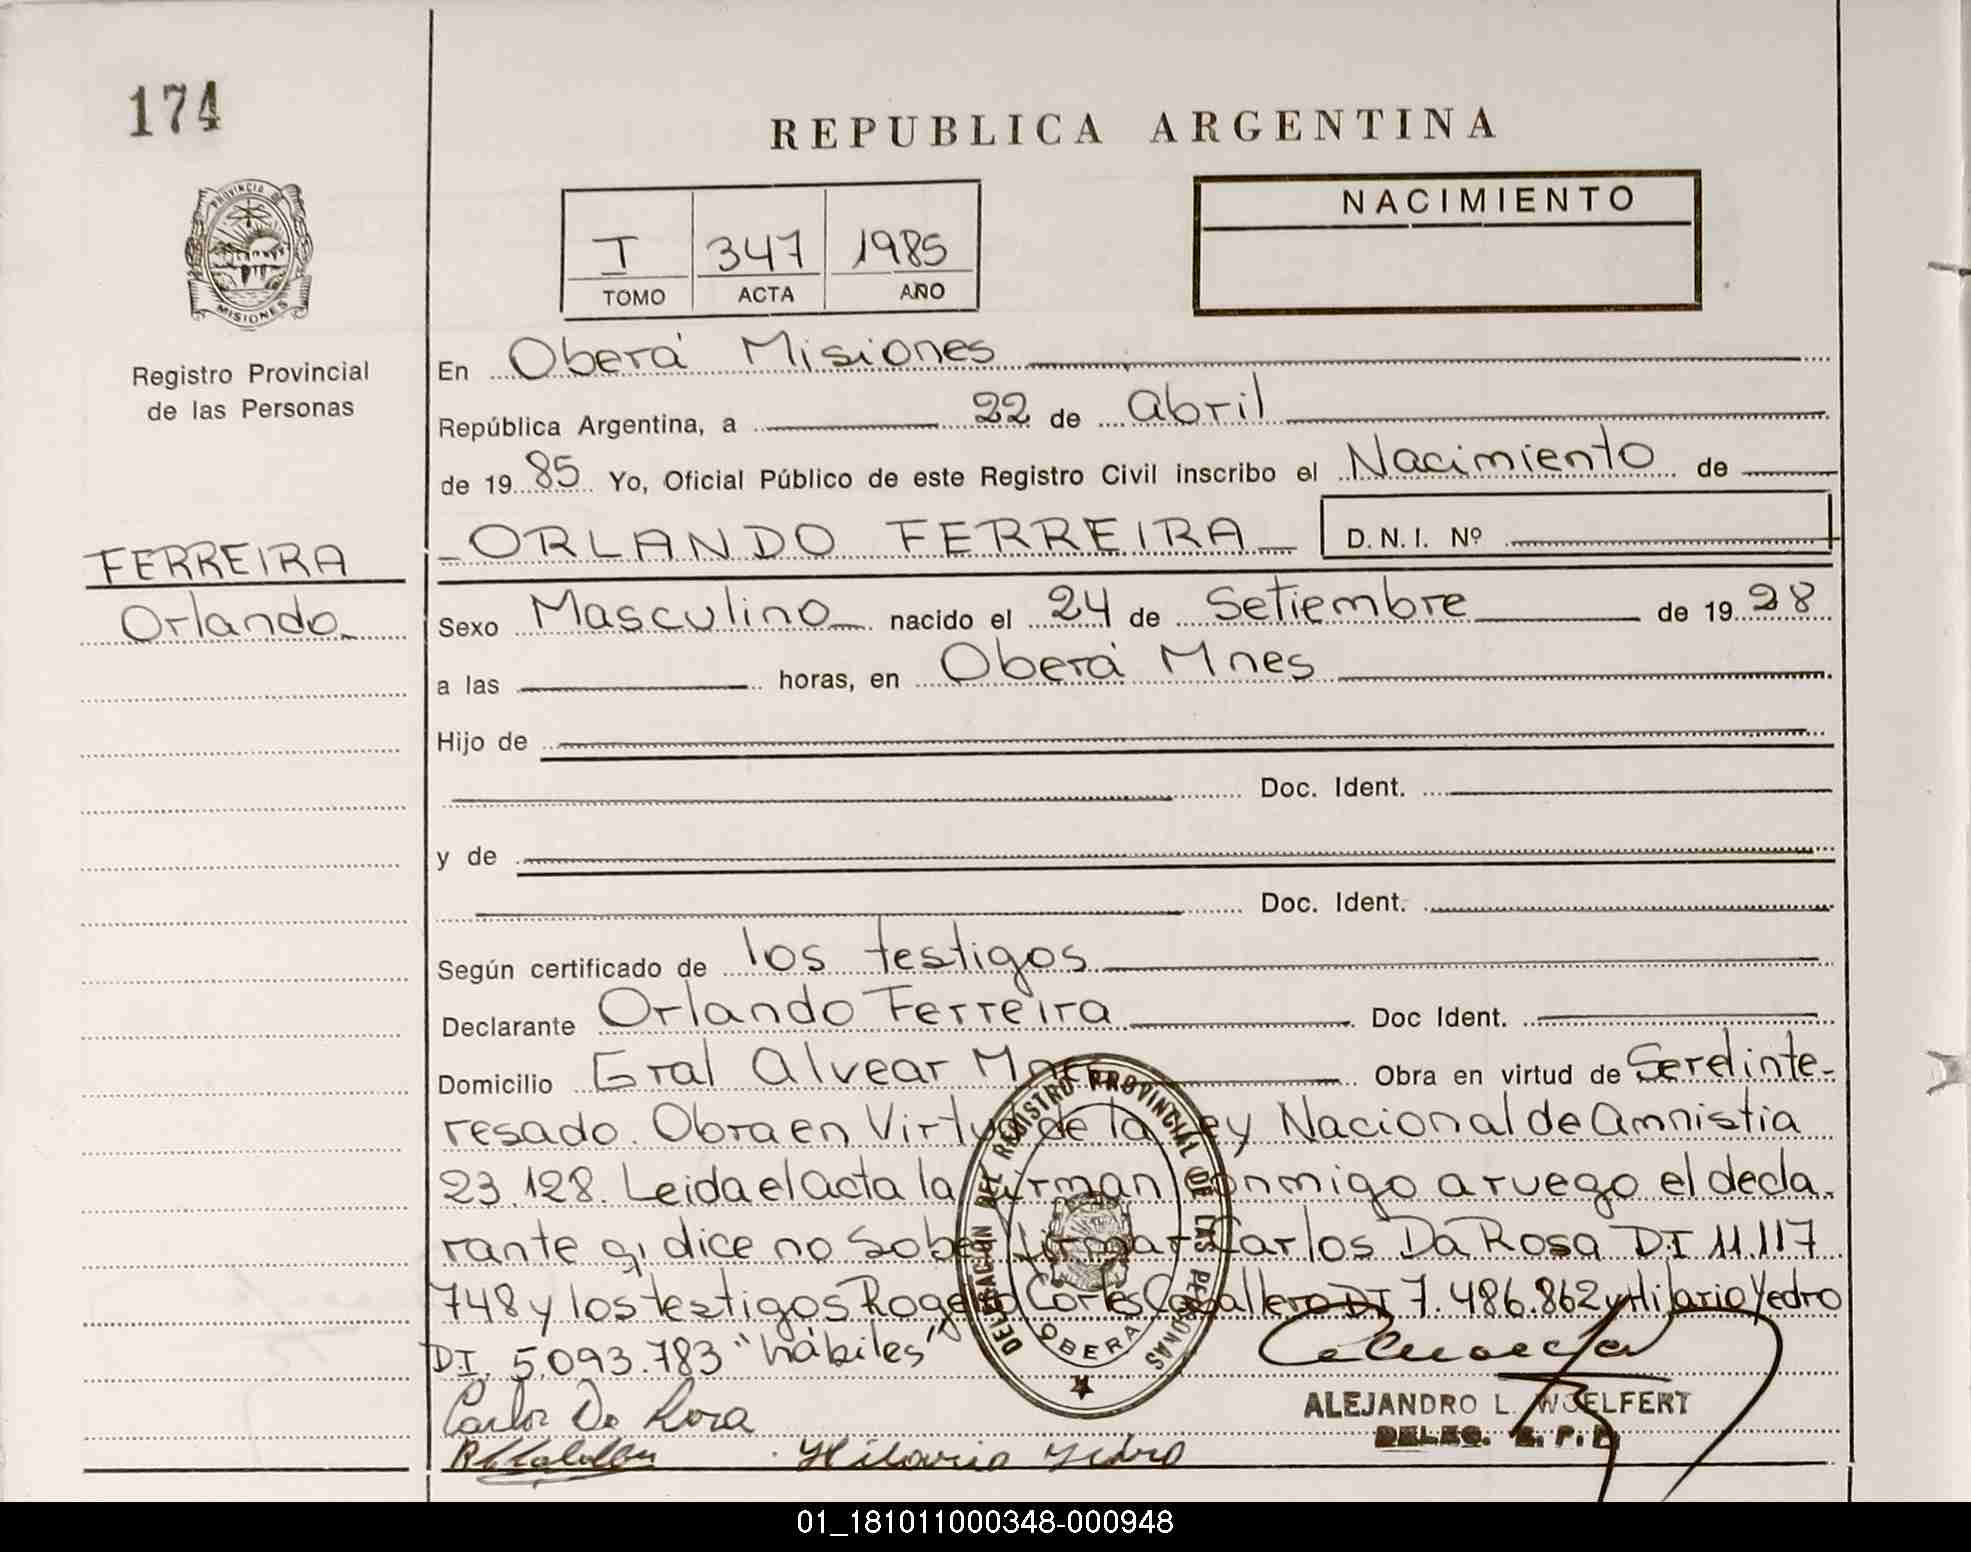 174
REPUBLICA ARGENTINA
PROVINCIA DE
MISIONES
NACIMIENTO
I 347 1985
TOMO ACTA AÑO
Registro Provincial
de las Personas
En Oberá Misiones
República Argentina, a 22 de abril
de 1985 Yo, Oficial Público de este Registro Civil inscribo el Nacimiento de
ORLANDO FERREIRA D.N.I. Nº
FERREIRA
Orlando
Sexo Masculino nacido el 24 de Setiembre de 1928
a las horas, en Oberá Mnes
Hijo de
Doc. Ident.
y de
Doc. Ident.
Según certificado de los testigos
Declarante Orlando Ferreira Doc Ident.
Domicilio Gral Alvear Mnes Obra en virtud de Ser el inte-
resado. Obra en Virtud de la Ley Nacional de Amnistia
23.128. Leida el acta la firman conmigo a ruego el decla.
rante q' dice no saber firmar Carlos Da Rosa DI 11.117
748 y los testigos Rogelio Carlos Caballero DI 7.486.862 y Hilario Yedro
D.I. 5.093.783 "hábiles"
DELEGACION DEL REGISTRO PROVINCIAL DE LAS PERSONAS
OBERA
Carlos Da Rosa
Hilario Yedro
ALEJANDRO L. WOELFERT
DELEG. R. P. P.
01_181011000348-000948